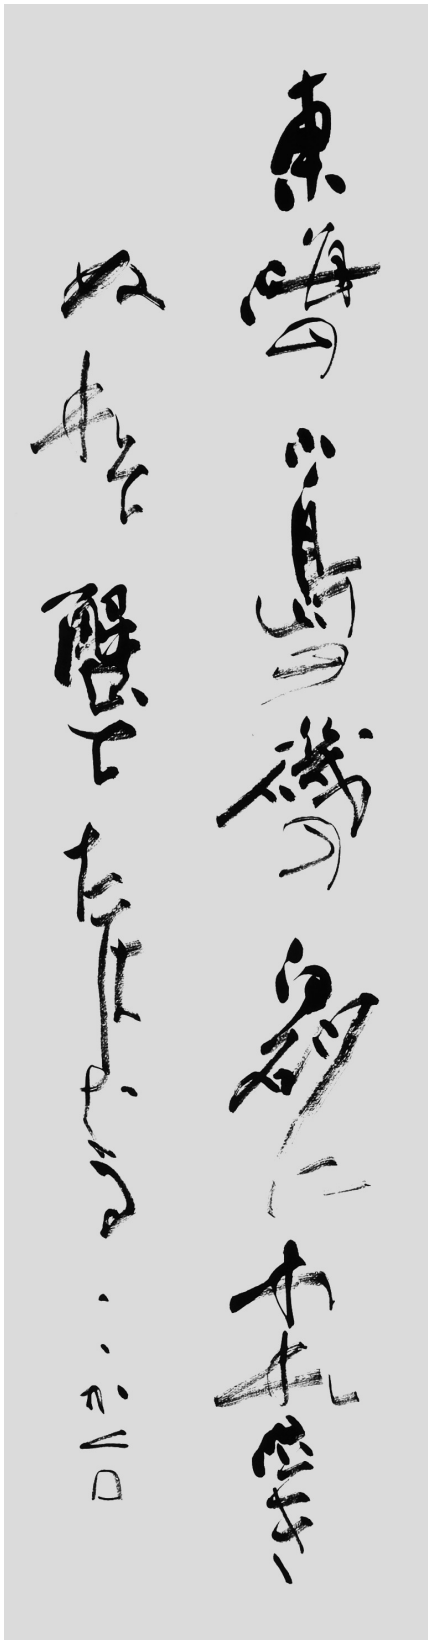 東海の小島の磯の白砂にわれ泣き
ぬれて蟹とたはむる